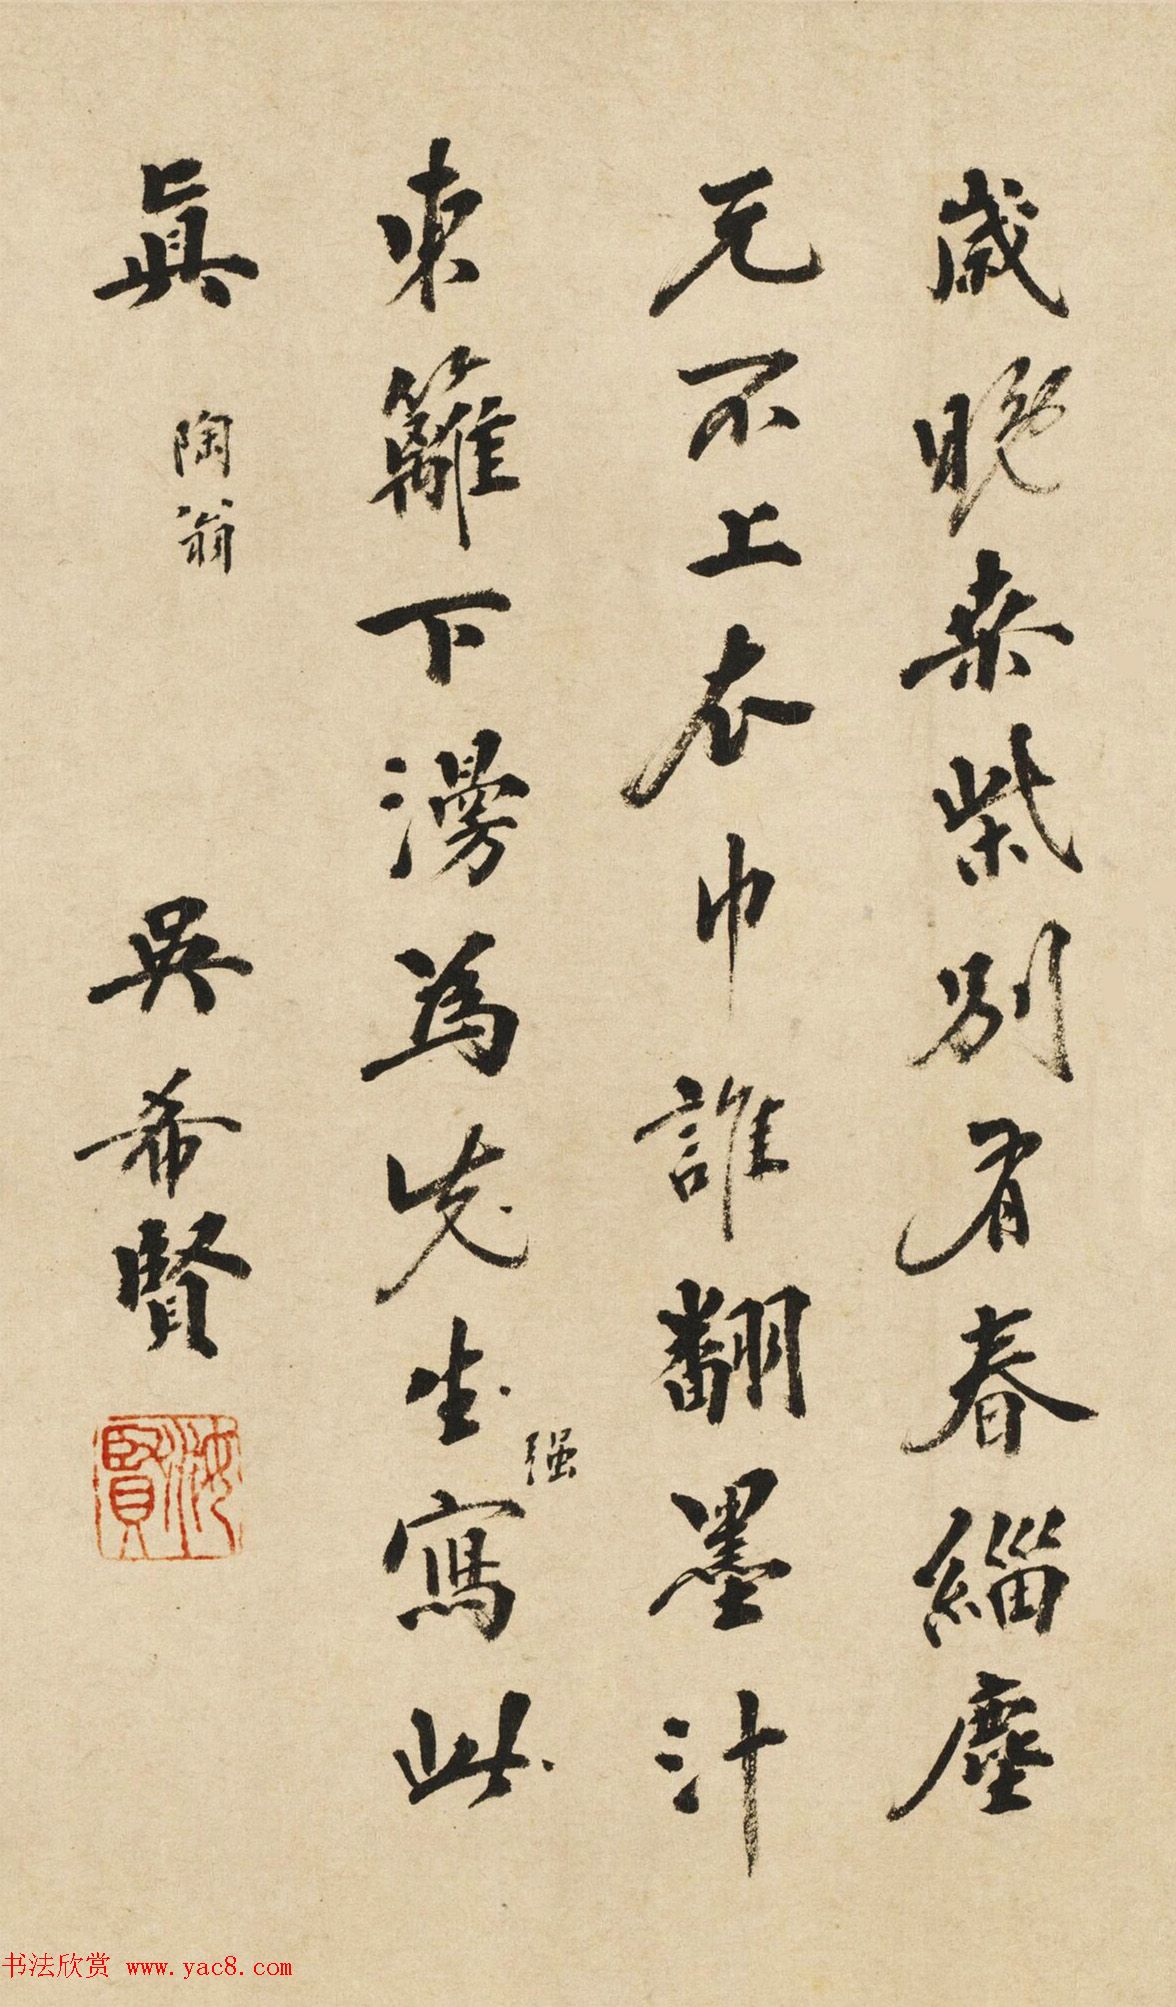 歲晚桒柴別有春緇塵
元不上衣巾誰翻墨汁
東籬下漫為先生寫此
强
真 陶翁
吳希賢
汝賢
书法欣赏 www.yac8.com